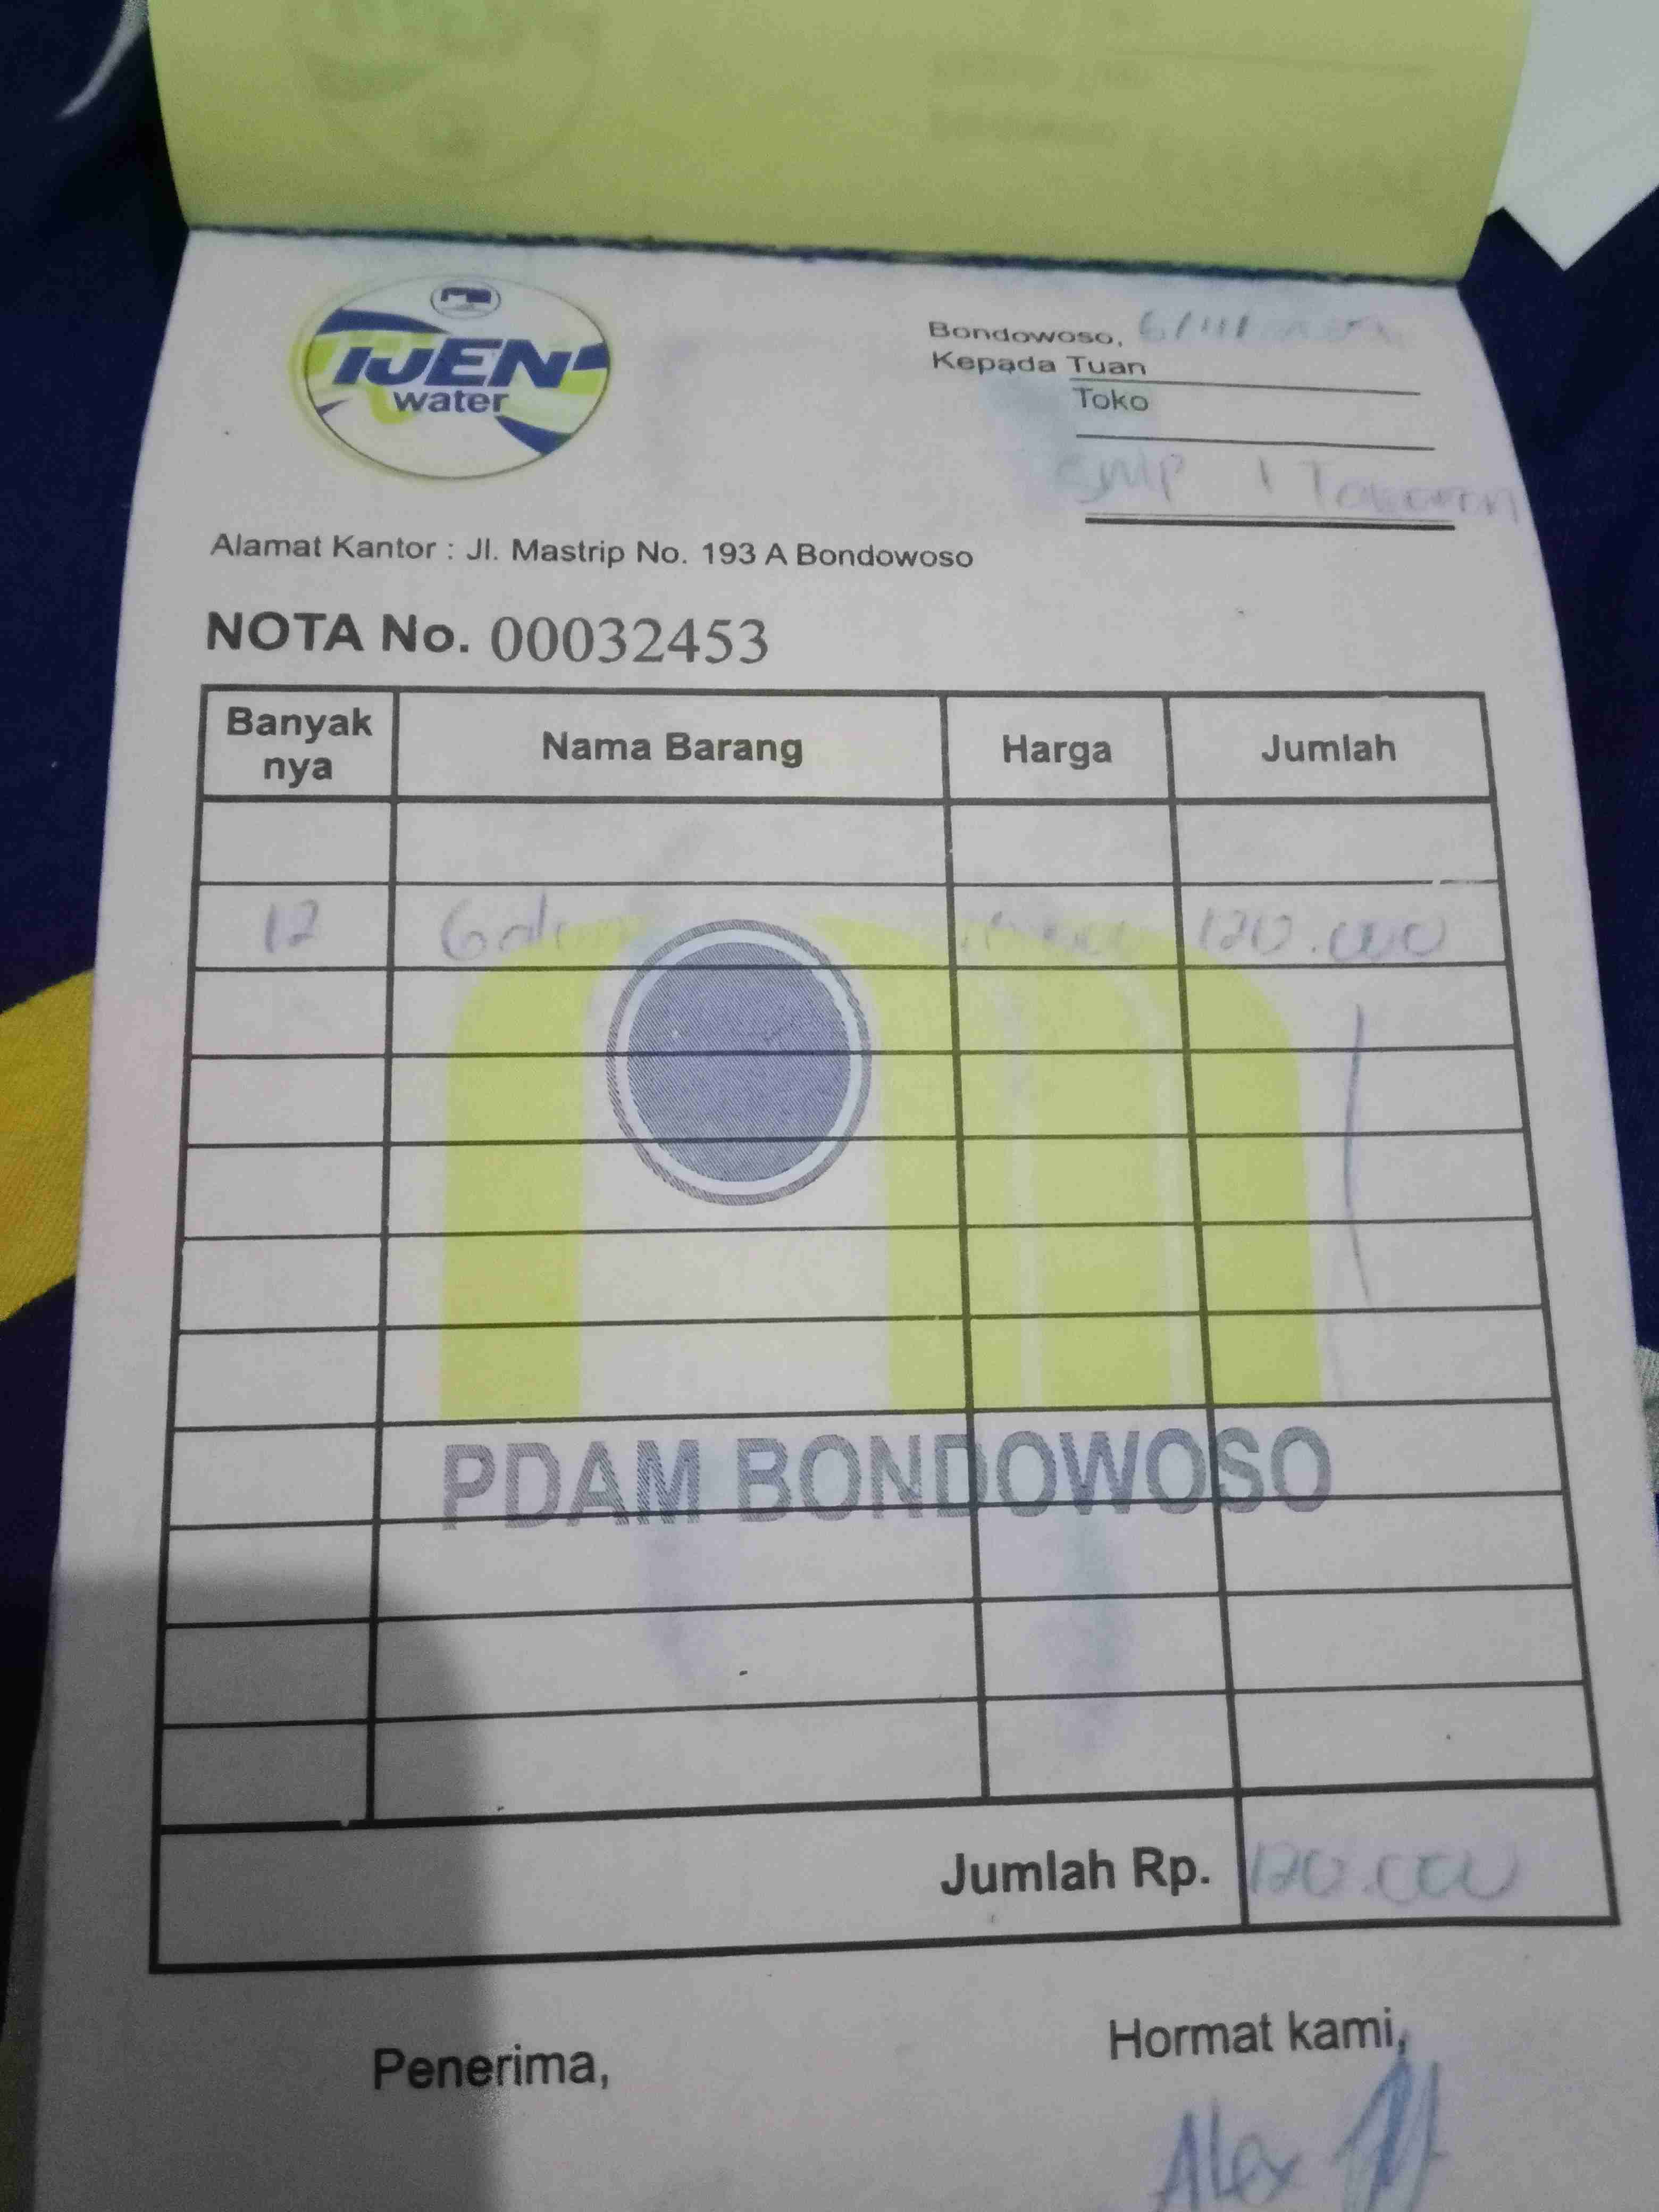 IJEN
water
Bondowoso, 6/11/
Kepada Tuan
Toko
SMP 1
Alamat Kantor : Jl. Mastrip No. 193 A Bondowoso
NOTA No. 00032453
Banyak nya Nama Barang Harga Jumlah
12 120.000
PDAM BONDOWOSO
Jumlah Rp. 120.000
Penerima,
Hormat kami,
Alex